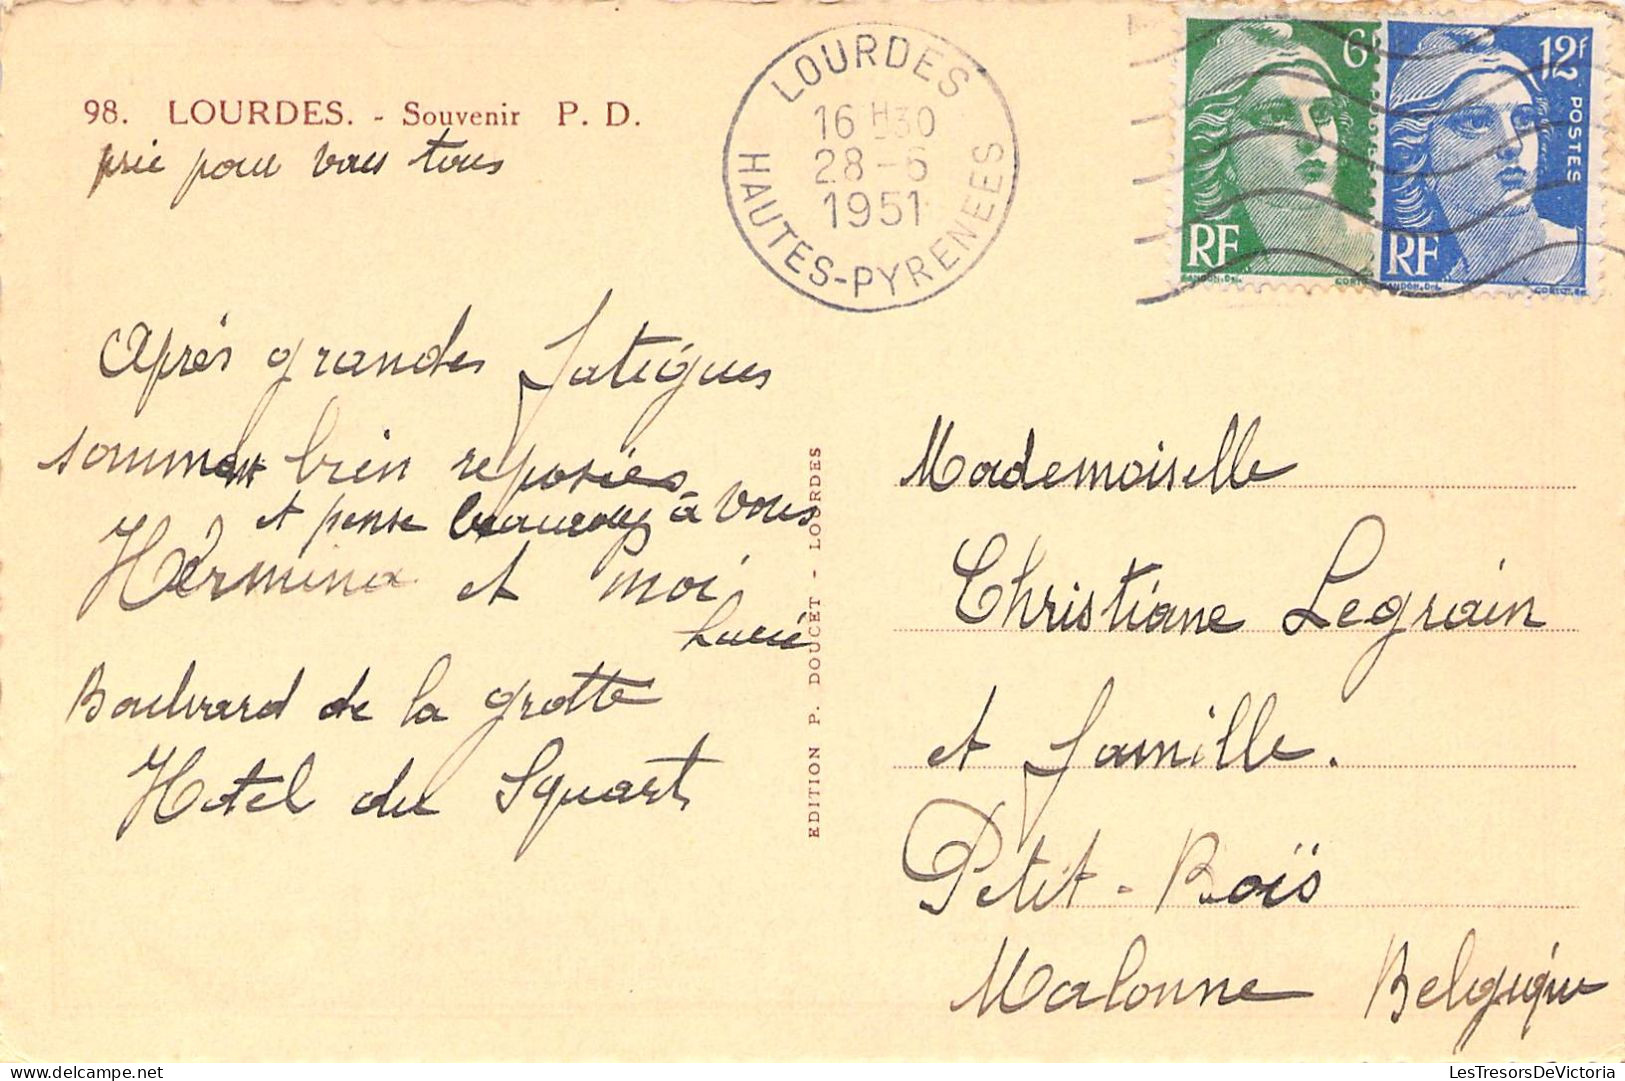 98. LOURDES. - Souvenir P. D.
prie pour vous tous
Après grandes fatigues
sommes bien reposées
et pense beaucoup à vous
Hermina et moi
Lucie
Boulvard de la grotte
Hotel du Squart
EDITION P. DOUCET - LOURDES
LOURDES
16 H 30
28-6
1951
HAUTES-PYRENEES
6F
RF
GANDON. Del.
CORTOT
12F
POSTES
RF
GANDON. Del.
CORTOT. sc.
Mademoiselle
Christiane Legrain
et famille.
Petit-Boïs
Malonne Belgique
delcampe.net
LesTresorsDeVictoria